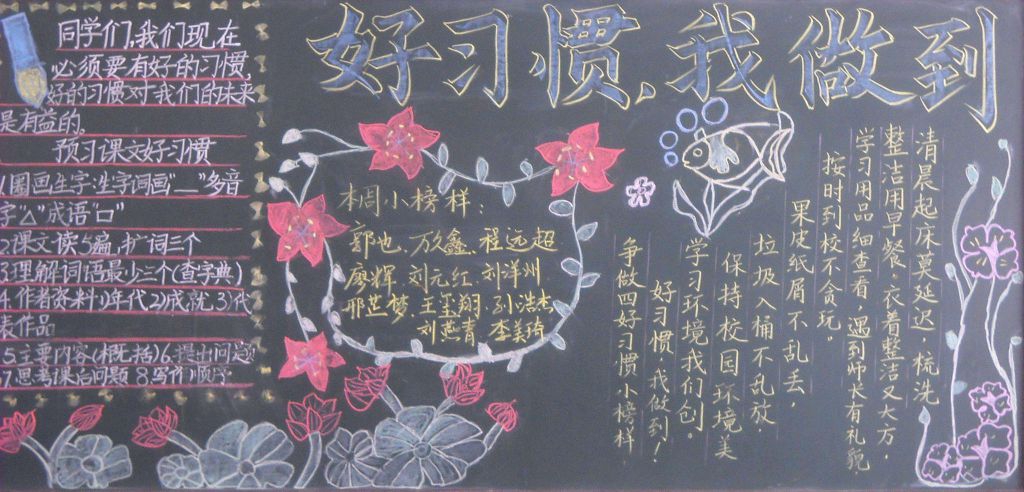 好习惯,我做到
同学们,我们现在
必须要有好的习惯,
好的习惯对我们的未来
是有益的。
预习课文好习惯
1.圈画生字:生字词画"—"多音
字"△"成语"口"
2.课文读5遍,扩词三个
3.理解词语最少三个(查字典)
4.作者资料1)年代2)成就3)代
表作品
5.主要内容(概括)6.提出问题
7.思考课后问题 8.写作顺序
小榜样:
郭也、万鑫、程远超
廖辉、刘元红、刘洋州
邢芷梦、王玺翔、孙浩杰
刘燕青、李美琦
清晨起床莫延迟,梳洗
整洁用早餐,衣着整洁又大方,
学习用品细查看,遇到师长有礼貌
按时到校不贪玩。
果皮纸屑不乱丢,
垃圾入桶不乱放
保持校园环境美
学习环境我们创。
好习惯 我做到!
争做四好习惯小榜样